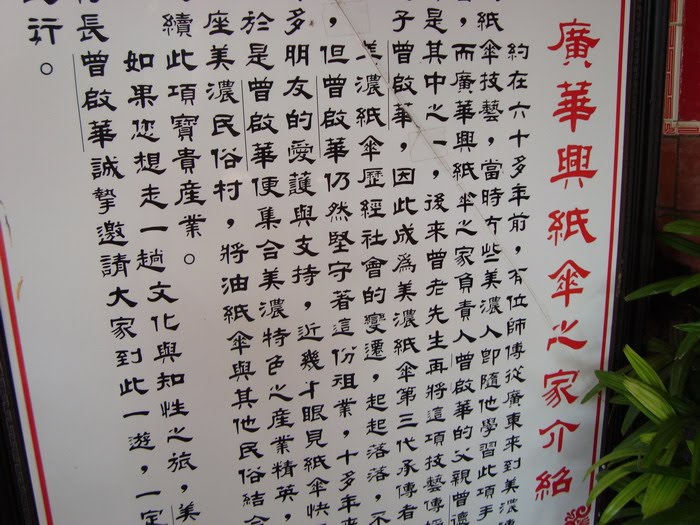 廣華興紙傘之家介紹
約在六十多年前，有位師傅從廣東來到美濃
紙傘技藝，當時有些美濃人即隨他學習此項手
，而廣華興紙傘之家負責人曾啟華的父親曾德
是其中之一，後來曾老先生再將這項技藝傳
子曾啟華，因此成為美濃紙傘第三代承傳者
美濃紙傘歷經社會的變遷，起起落落，不
，但曾啟華仍然堅守著這份祖業，十多年來
多朋友的愛護與支持，近幾十眼見紙傘快
於是曾啟華便集合美濃特色之產業精英，
座美濃民俗村，將油紙傘與其他民俗結合
續此項寶貴產業。
如果您想走一趟文化與知性之旅，美
長曾啟華誠摯邀請大家到此一遊，一定
行。